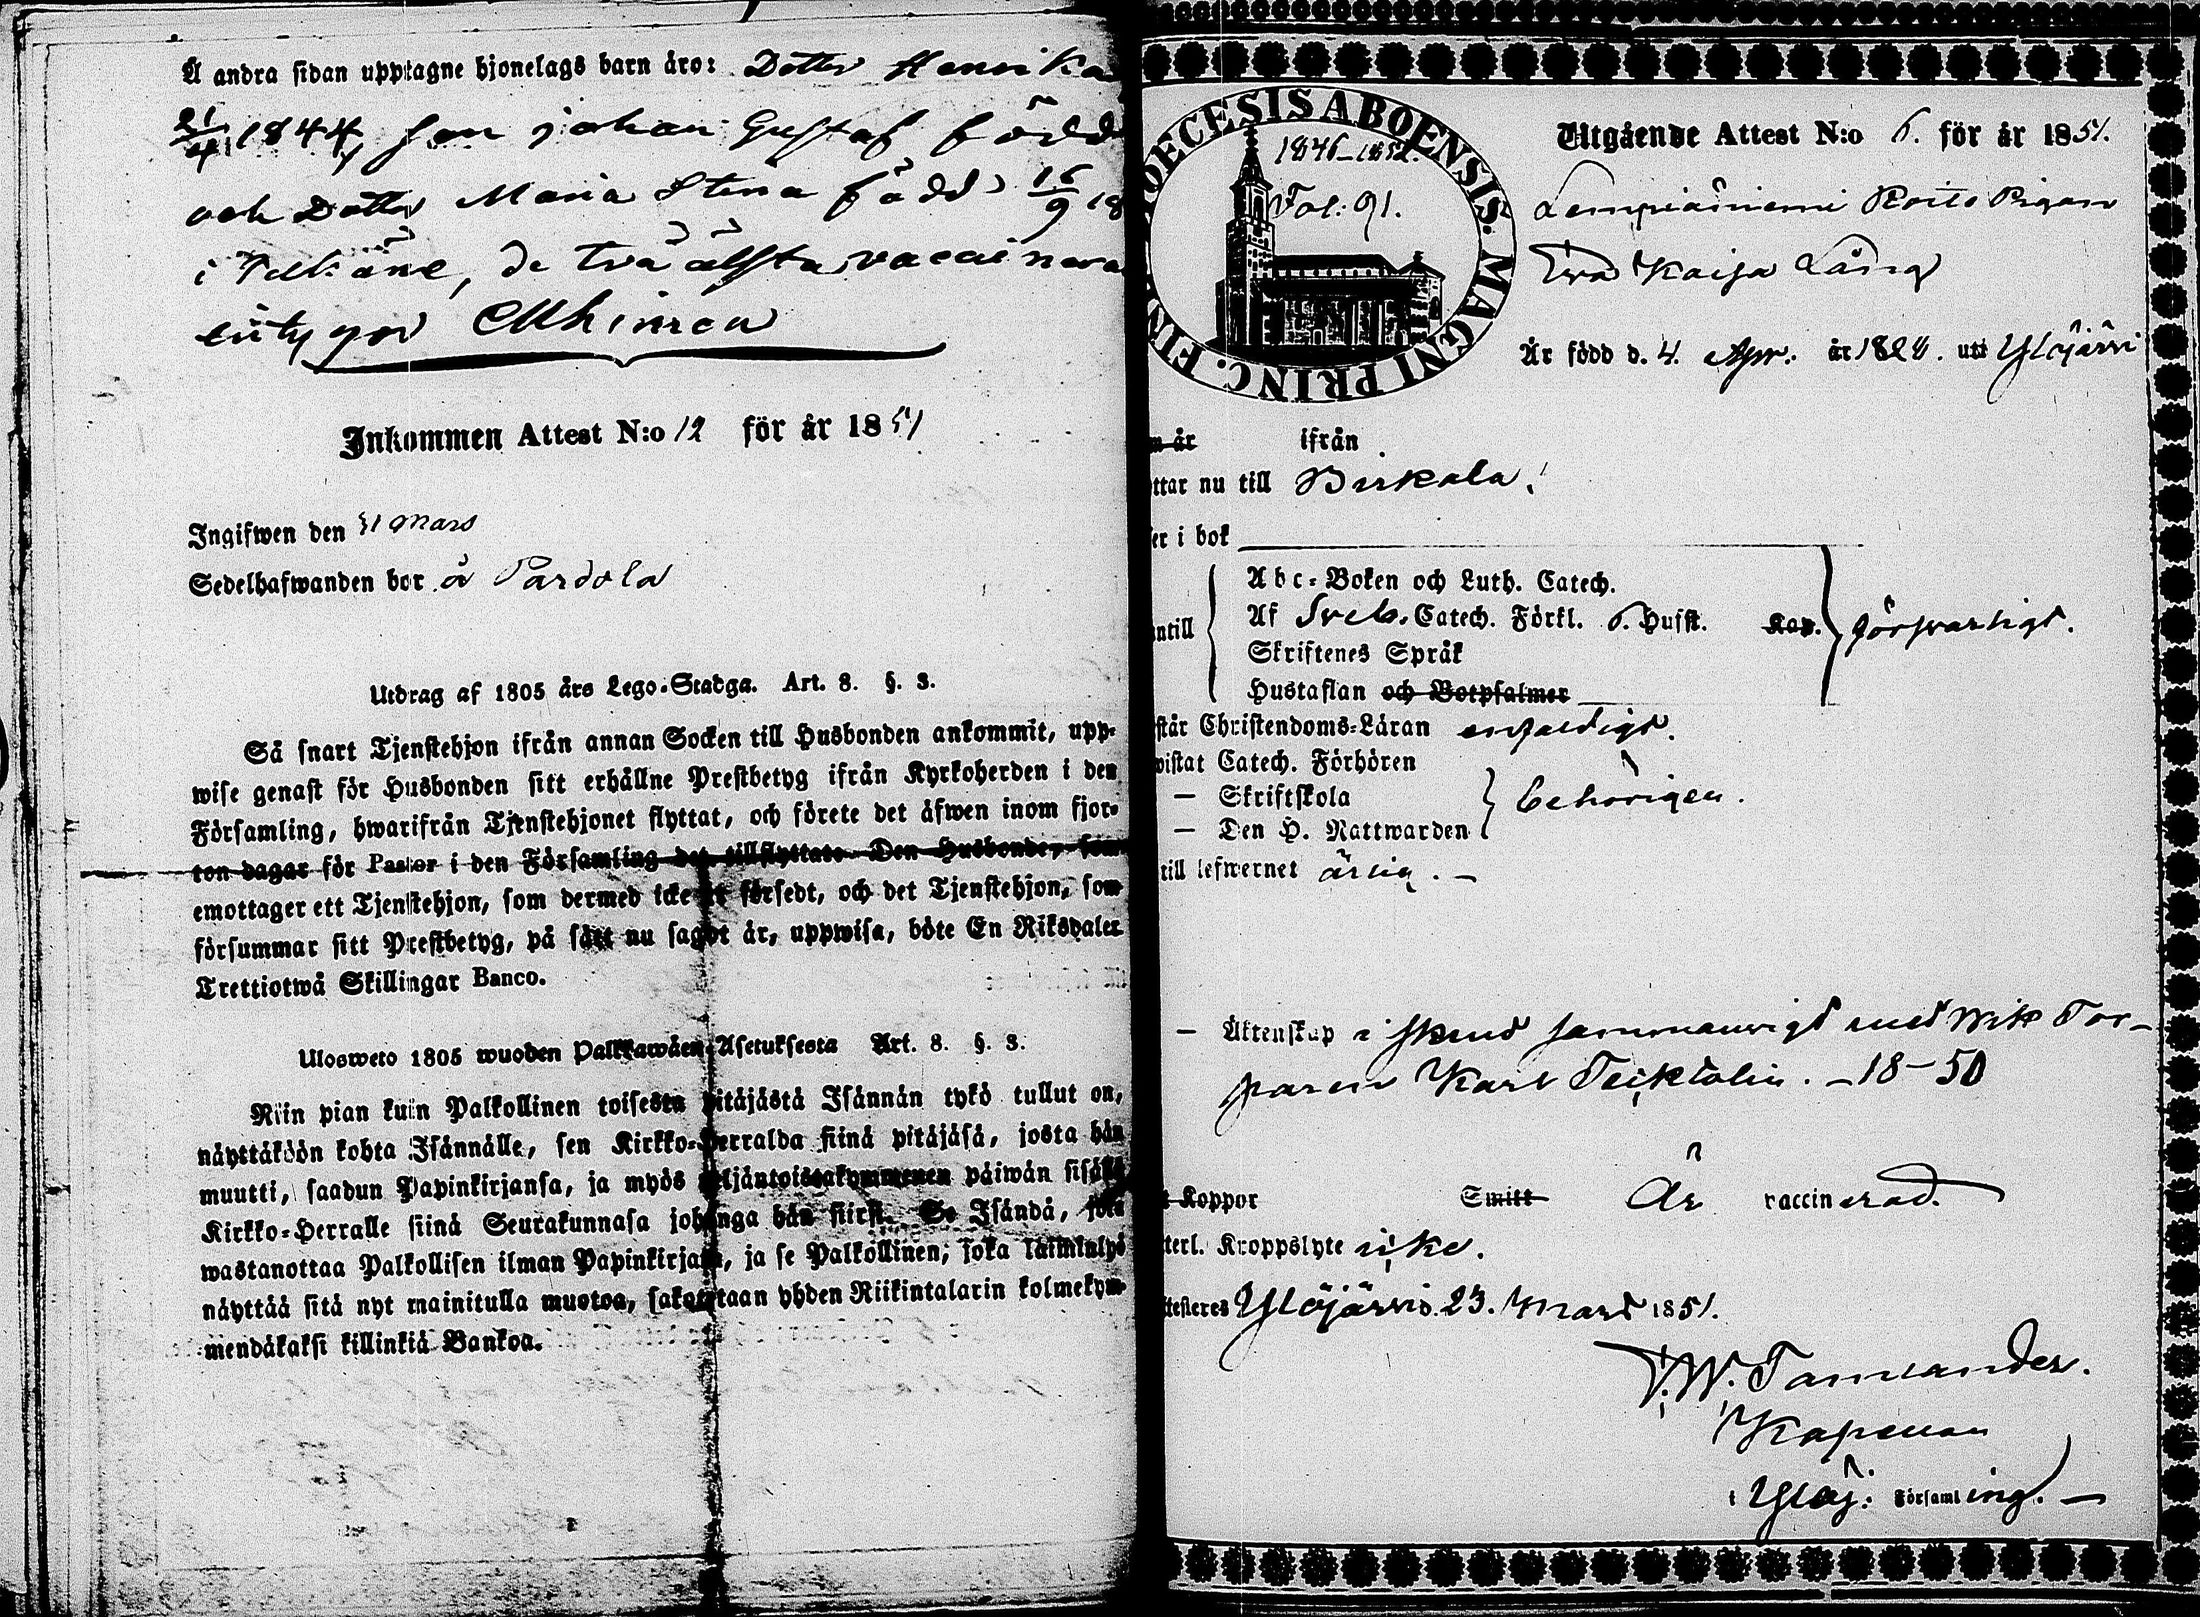 Å andra sidan upptagne hjonelags barn äro: Dotter Henrika
21/4 1844, Son Johan Gustaf född
och Dotter Maria Stina född 16/9 18
i, de två älsta vaccinera
intygar
Inkommen Attest N:o 12 för år 1851
Ingifwen den 31 Mars
Sedelhafwanden bor å Pardola
Utdrag af 1805 års Lego-Stadga. Art. 8. §. 3.
Så snart Tjenstehjon ifrån annan Socken till Husbonden ankommit, upp-
wise genast för Husbonden sitt erhållne Prestbetyg ifrån Kyrkoherden i den
Församling, hwarifrån Tjenstehjonet flyttat, och förete det äfwen inom fjor-
ton dagar för Pastor i den Församling det tillflyttat. Den Husbonde, som
emottager ett Tjenstehjon, som dermed icke är försedt, och det Tjenstehjon, som
försummar sitt Prestbetyg, på sätt nu sagdt är, uppwisa, böte En Riksdaler
Trettiotwå Skillingar Banco.
Ulosweto 1805 wuoden Palkkawäen Asetuksesta Art. 8. §. 3.
Niin pian kuin Palkollinen toisesta pitäjästä Isännän tykö tullut on,
näyttäköön kohta Isännälle, sen Kirkko-Herralda siinä pitäjäsä, josta hän
muutti, saadun Papinkirjansa, ja myös neljäntoistakymmenen päiwän sisällä
Kirkko-Herralle siinä Seurakunnasa johonga hän siirsi. Se Isändä, joka
wastanottaa Palkollisen ilman Papinkirjata, ja se Palkollinen, joka laiminlyö
näyttää sitä nyt mainitulla muotoa, sakotetaan yhden Riikintalarin kolmekym-
mendäkaksi killinkiä Bankoa.
DIOECESIS ABOENSIS. MAGNI PRINC. FIN
1846–1852.
Fol: 91.
Utgående Attest N:o 6. för år 1851.
Lempiäiniemi Pigan
Eva Kaisa Lång
Är född d. 4. Apr. år 1828. uti Ylöjärvi
n år ifrån
ttar nu till Birkala.
er i bok
Abc-Boken och Luth. Catech.
ntill Af Sveb. Catech. Förkl. 6. Husst. Kap. försvarligt.
Skriftenes Språk
Hustaflan och Botpsalmer
står Christendoms-Läran enfaldigt.
wistat Catech. Förhören
— Skriftskola behörigen.
— Den H. Nattwarden
till lefwernet ärlig. —
— Äktenskap i stånd sammanvigd med Tor-
paren Karl. — 18–50
t Koppor Smitt Är vaccinerad.
terl. Kroppslyte icke.
ttesteres Ylöjärvi 23. Mars 1851.
Kapellan
i Ylöj: Församling. —